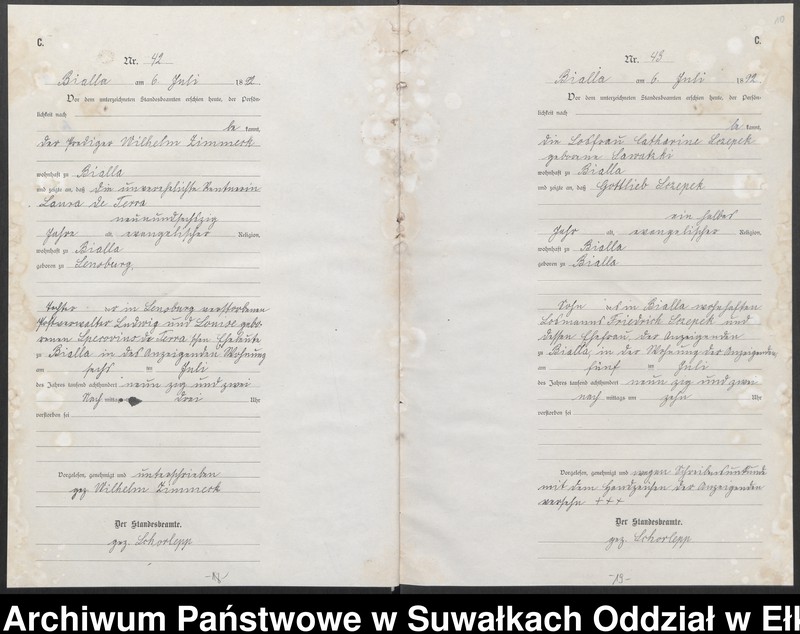 C.
Nr. 42
Bialla am 6. Juli 1892
Vor dem unterzeichneten Standesbeamten erschien heute, der Persön-
lichkeit nach
be kannt,
der Prediger Wilhelm Zimmerk
wohnhaft zu Bialla
und zeigte an, daß die unverehelichte Rentnerin
Laura de Terra
neunundsechzig
Jahre alt, evangelischer Religion,
wohnhaft zu Bialla
geboren zu Sensburg,
Tochter der in Sensburg verstorbenen
Postverwalter Ludwig und Louise gebo-
renen de Terra schen Eheleute
zu Bialla in des Anzeigenden Wohnung
am sechs ten Juli
des Jahres tausend achthundert neun zig und zwei
Nach mittags um drei Uhr
verstorben sei
Vorgelesen, genehmigt und unterschrieben
gez Wilhelm Zimmerk
Der Standesbeamte.
gez. Schorlepp
C.
Nr. 43
Bialla am 6. Juli 1892
Vor dem unterzeichneten Standesbeamten erschien heute, der Persön-
lichkeit nach
be kannt,
die Losfrau Catharine Szepek
geborene
wohnhaft zu Bialla
und zeigte an, daß Gottlieb Szepek
ein halbes
Jahr alt, evangelischer Religion,
wohnhaft zu Bialla
geboren zu Bialla
Sohn des in Bialla wohnhaften
Losmanns Friedrich Szepek und
dessen Ehefrau der Anzeigenden
zu Bialla, in der Wohnung der Anzeigenden
am fünf ten Juli
des Jahres tausend achthundert neun zig und zwei
nach mittags um zehn Uhr
verstorben sei
Vorgelesen, genehmigt und wegen Schreibensunkunde
mit dem Handzeichen der Anzeigenden
versehn +++
Der Standesbeamte.
gez. Schorlepp
-13-
Archiwum Państwowe w Suwałkach Oddział w Ełk